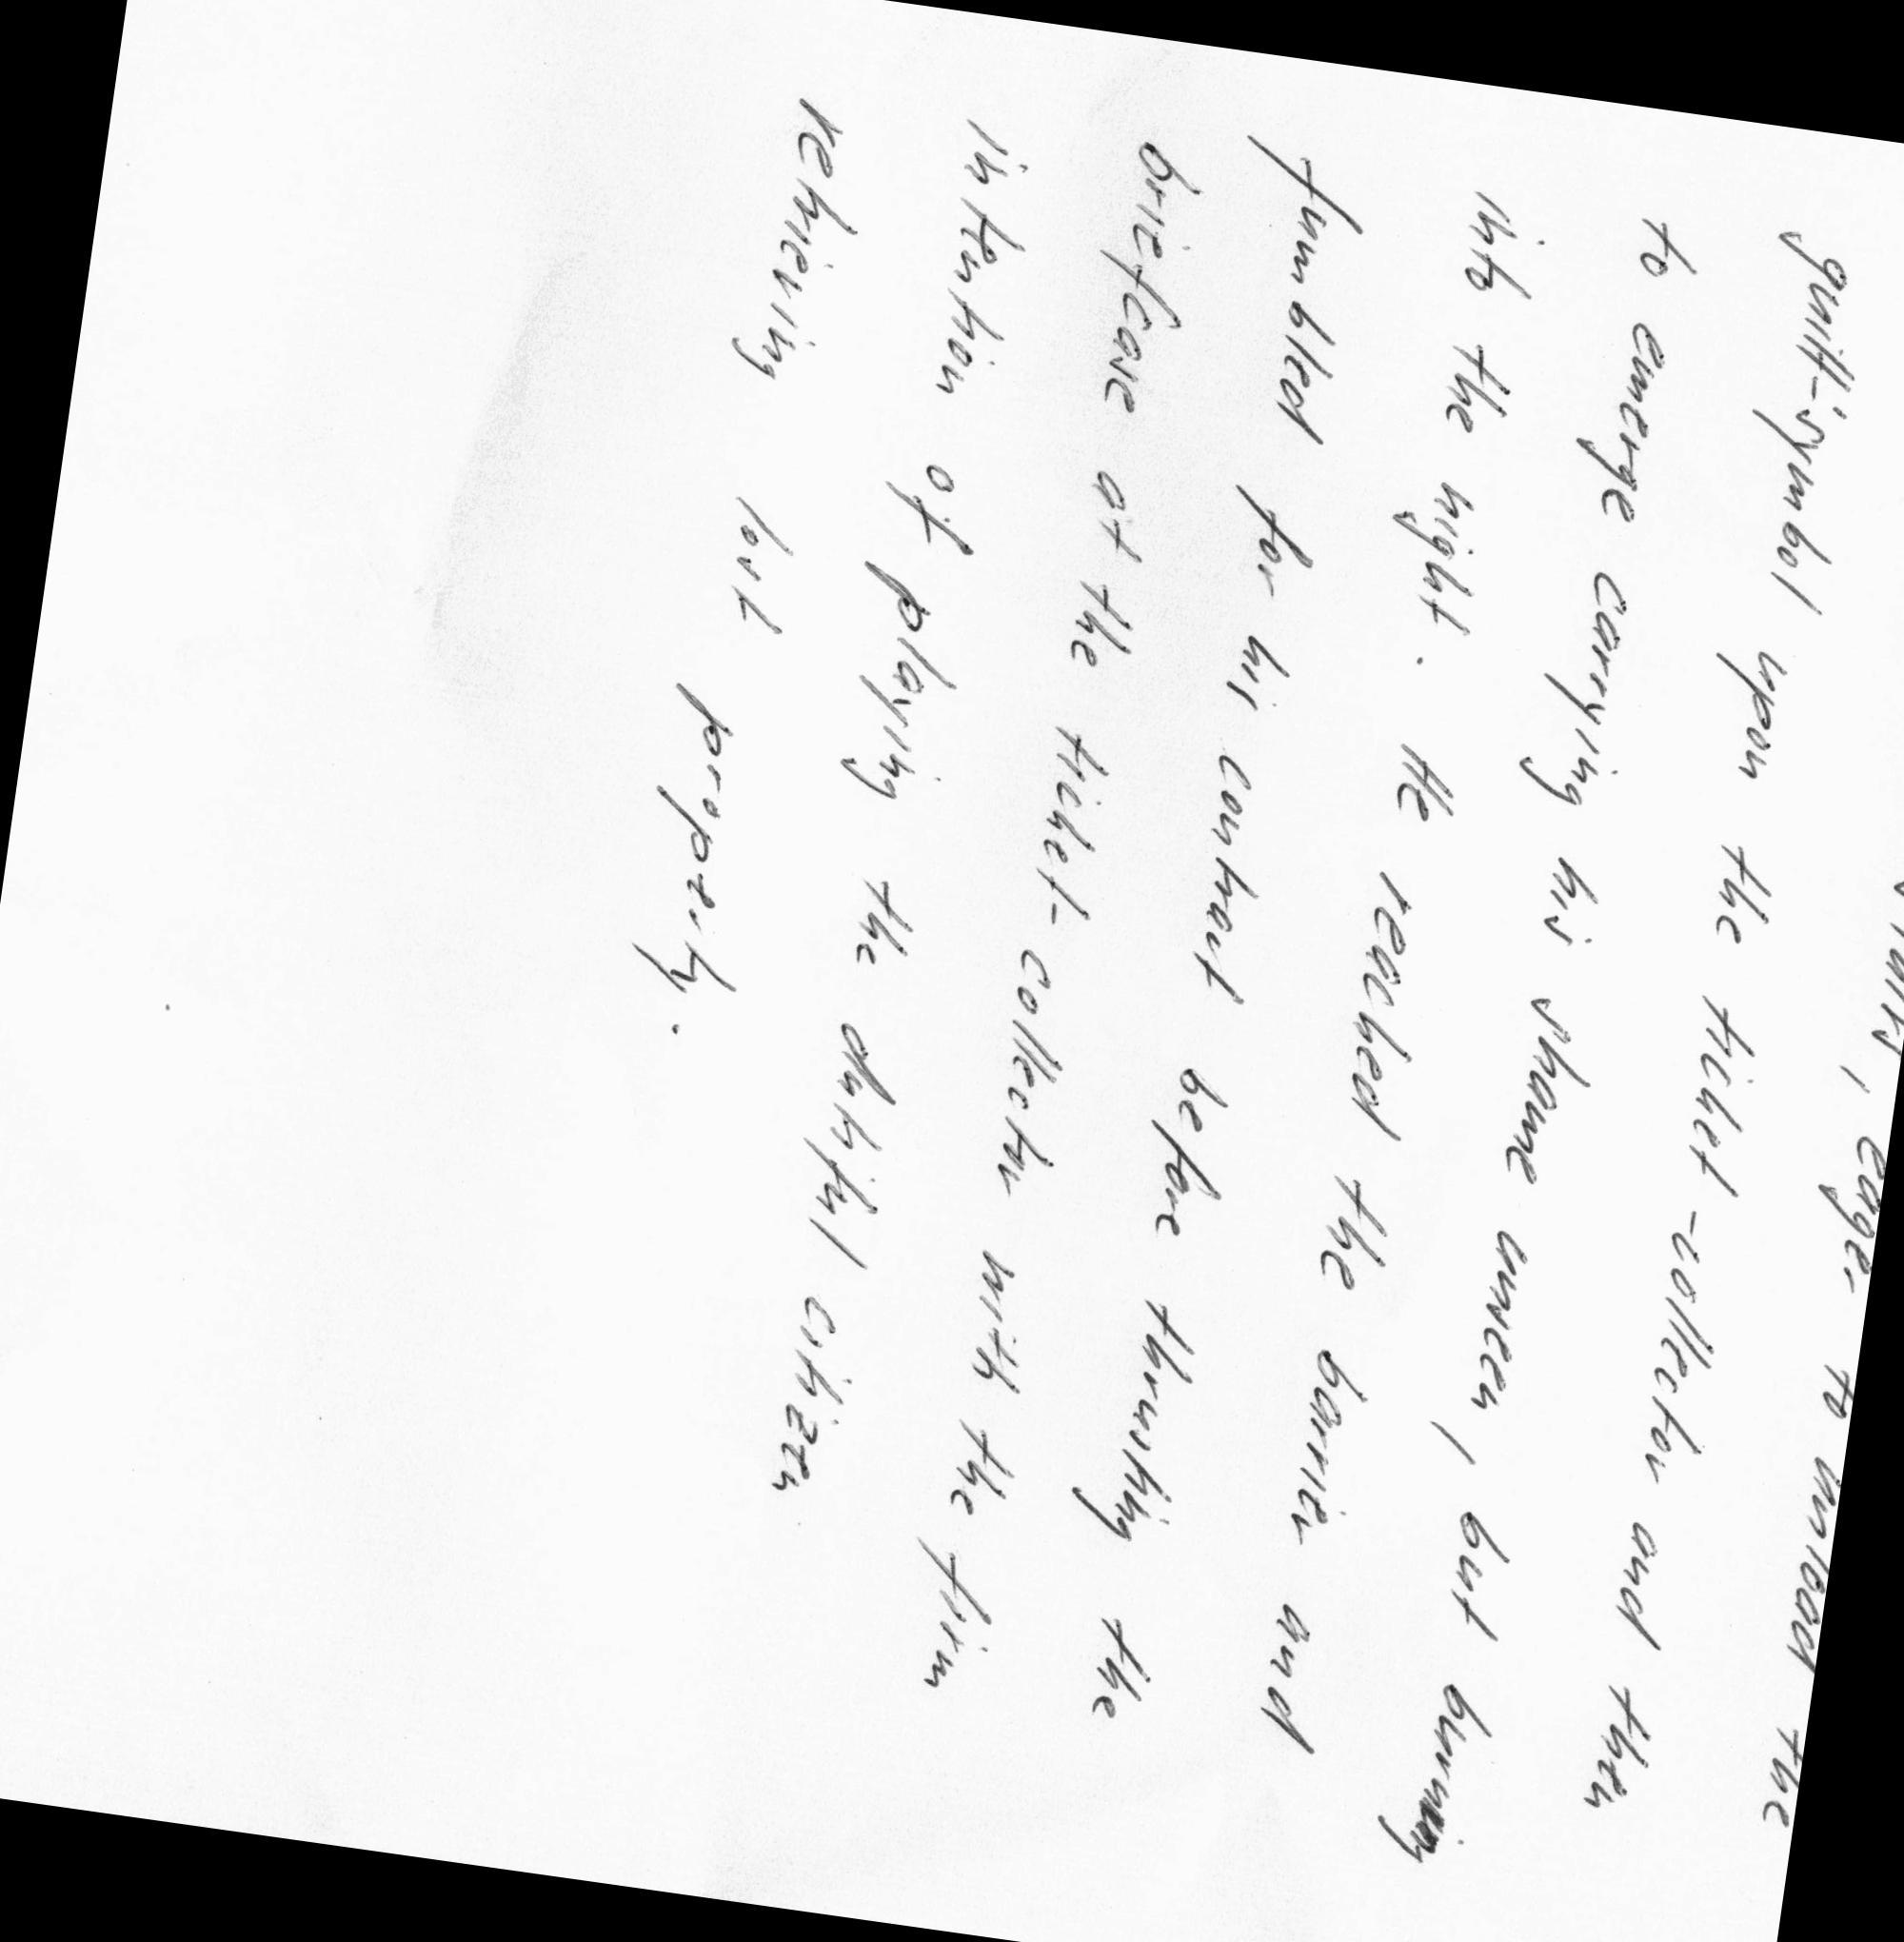 , eager to unload the
guilt-symbol upon the ticket-collector and then
to emerge carrying his shame unseen, but burning
into the night. He reached the barrier and
fumbled for his contract before thrusting the
briefcase at the ticket-collector with the firm
intention of playing the dutiful citizen
retrieving lost property.